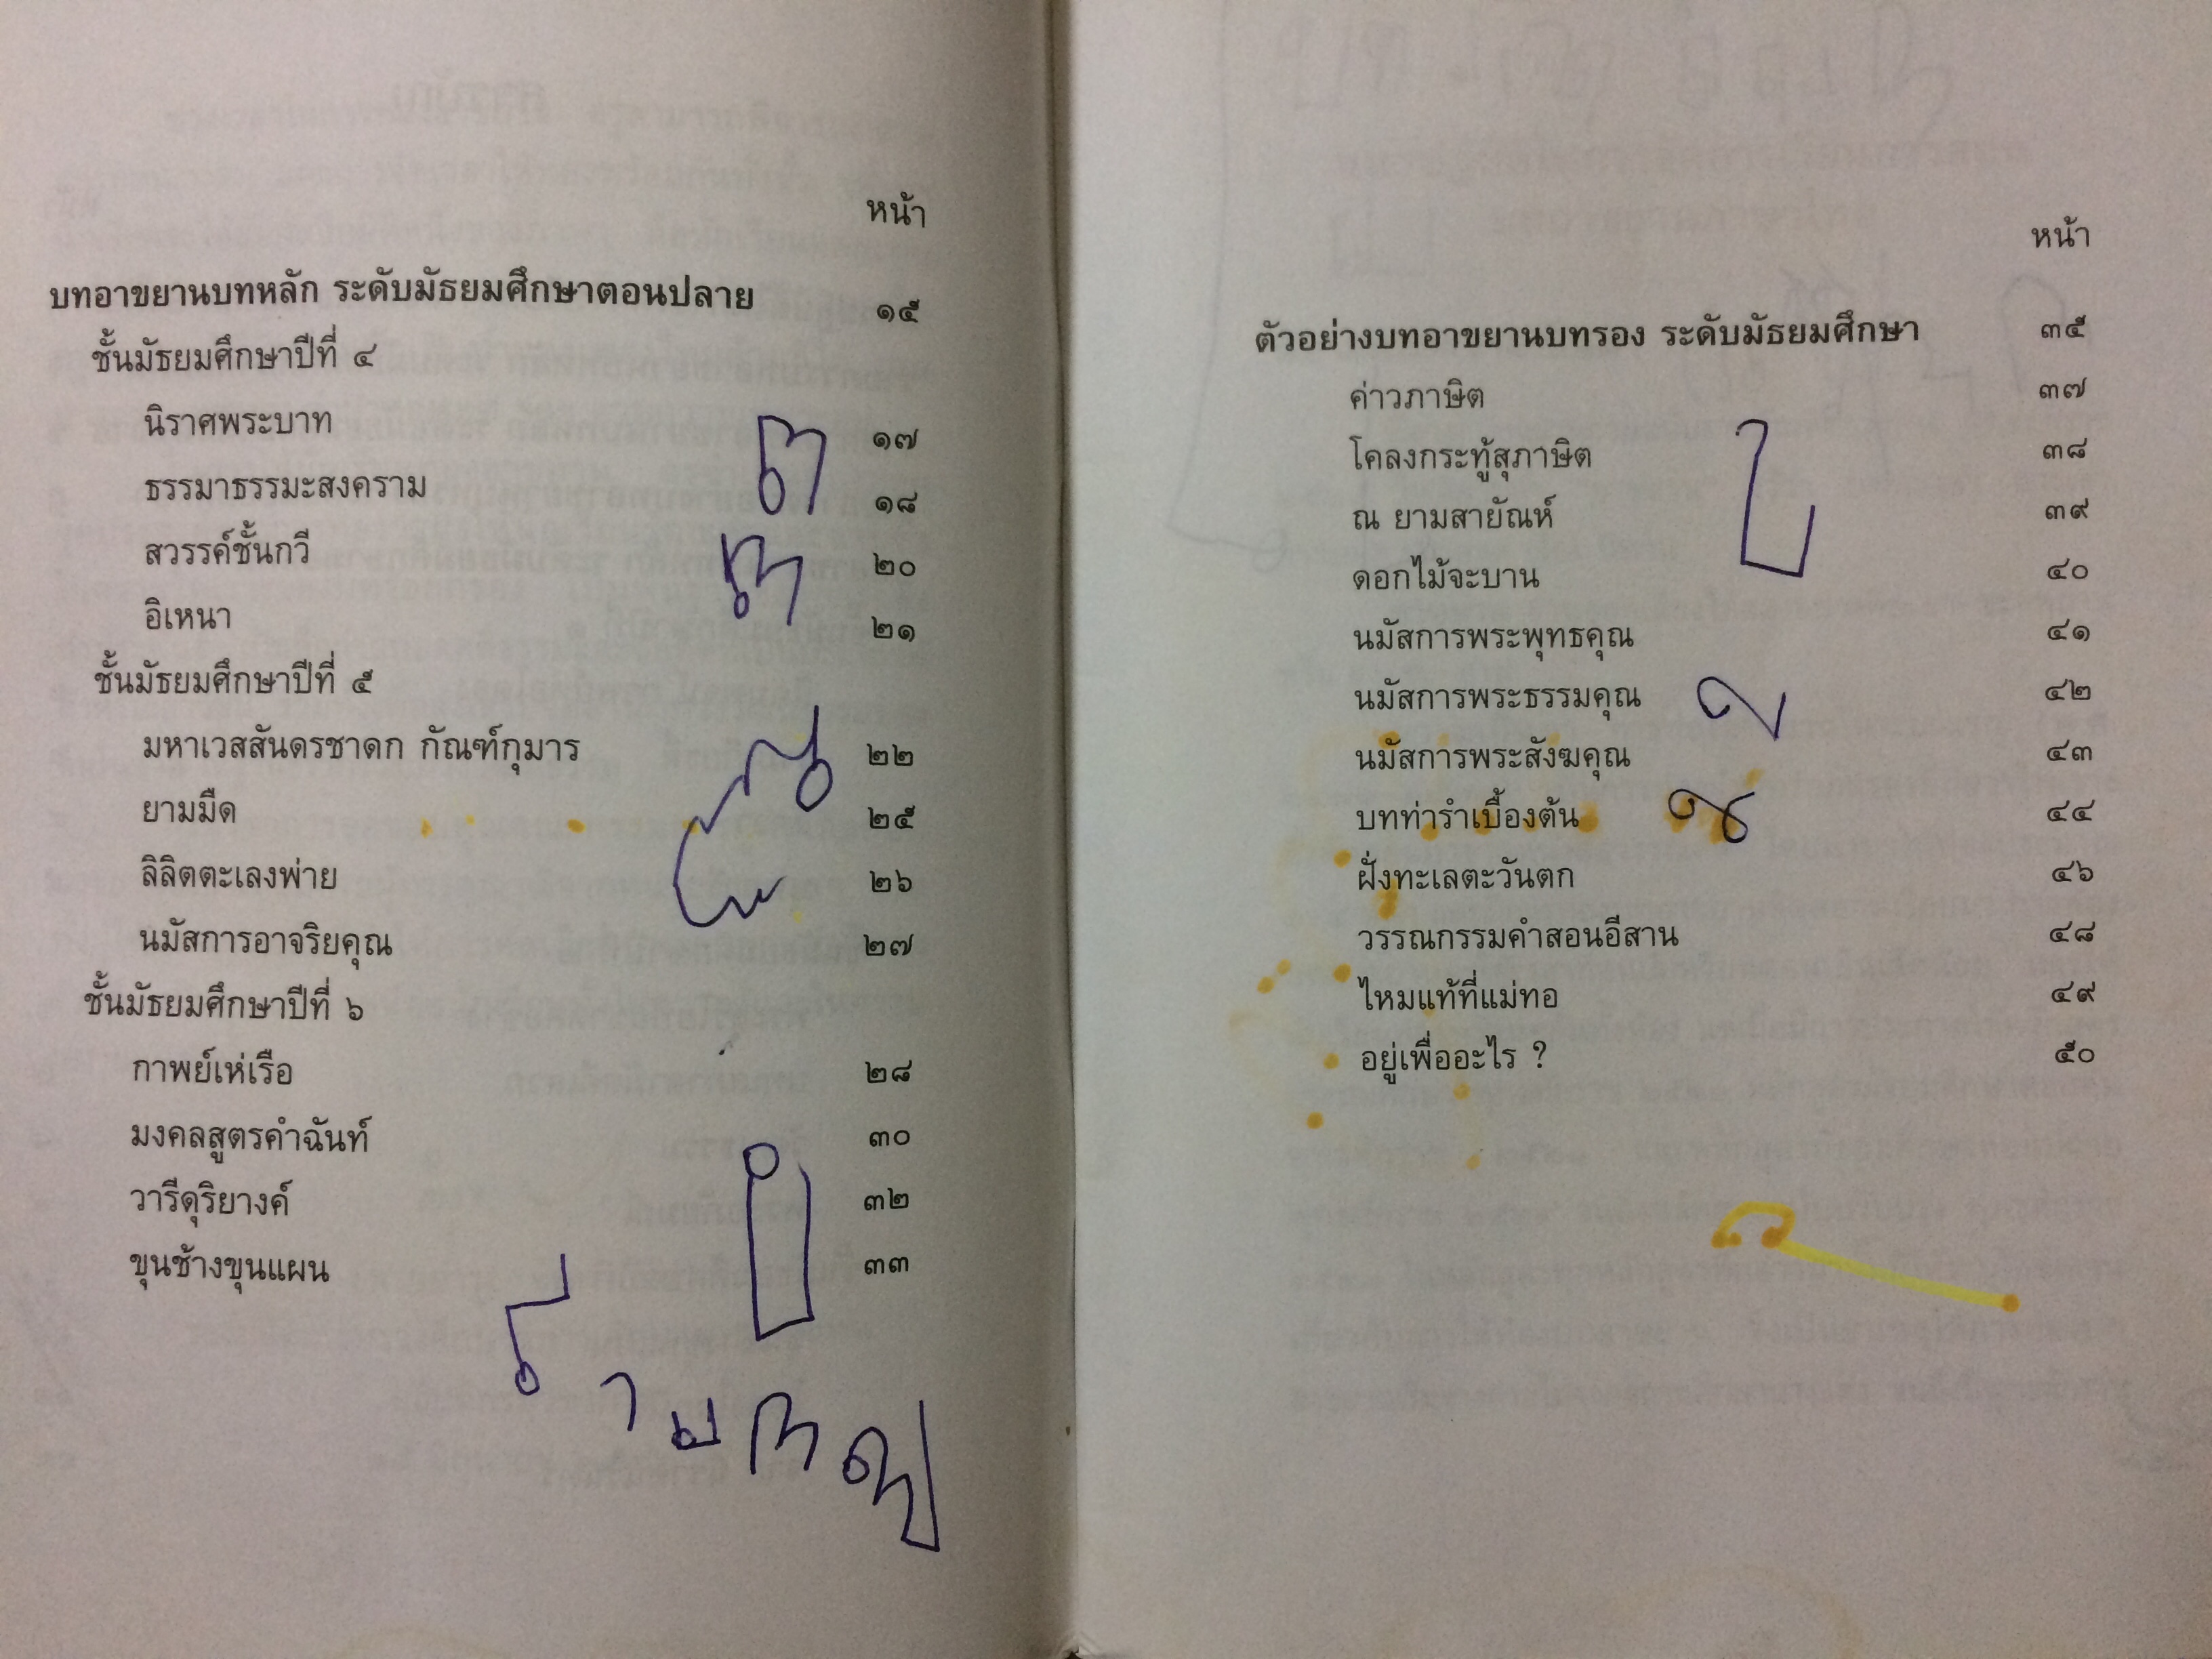 หน้า
บทอาขยานบทหลัก ระดับมัธยมศึกษาตอนปลาย ๑๕
ชั้นมัธยมศึกษาปีที่ ๔
นิราศพระบาท ๑๗
ธรรมาธรรมะสงคราม ๑๘
สวรรค์ชั้นกวี ๒๐
อิเหนา ๒๑
ชั้นมัธยมศึกษาปีที่ ๕
มหาเวสสันดรชาดก กัณฑ์กุมาร ๒๒
ยามมืด ๒๕
ลิลิตตะเลงพ่าย ๒๖
นมัสการอาจริยคุณ ๒๗
ชั้นมัธยมศึกษาปีที่ ๖
กาพย์เห่เรือ ๒๘
มงคลสูตรคำฉันท์ ๓๐
วารีดุริยางค์ ๓๒
ขุนช้างขุนแผน ๓๓
หน้า
ตัวอย่างบทอาขยานบทรอง ระดับมัธยมศึกษา ๓๕
ค่าวภาษิต ๓๗
โคลงกระทู้สุภาษิต ๓๘
ณ ยามสายัณห์ ๓๙
ดอกไม้จะบาน ๔๐
นมัสการพระพุทธคุณ ๔๑
นมัสการพระธรรมคุณ ๔๒
นมัสการพระสังฆคุณ ๔๓
บทท่ารำเบื้องต้น ๔๔
ฝั่งทะเลตะวันตก ๔๖
วรรณกรรมคำสอนอีสาน ๔๘
ไหมแท้ที่แม่ทอ ๔๙
อยู่เพื่ออะไร ? ๕๐